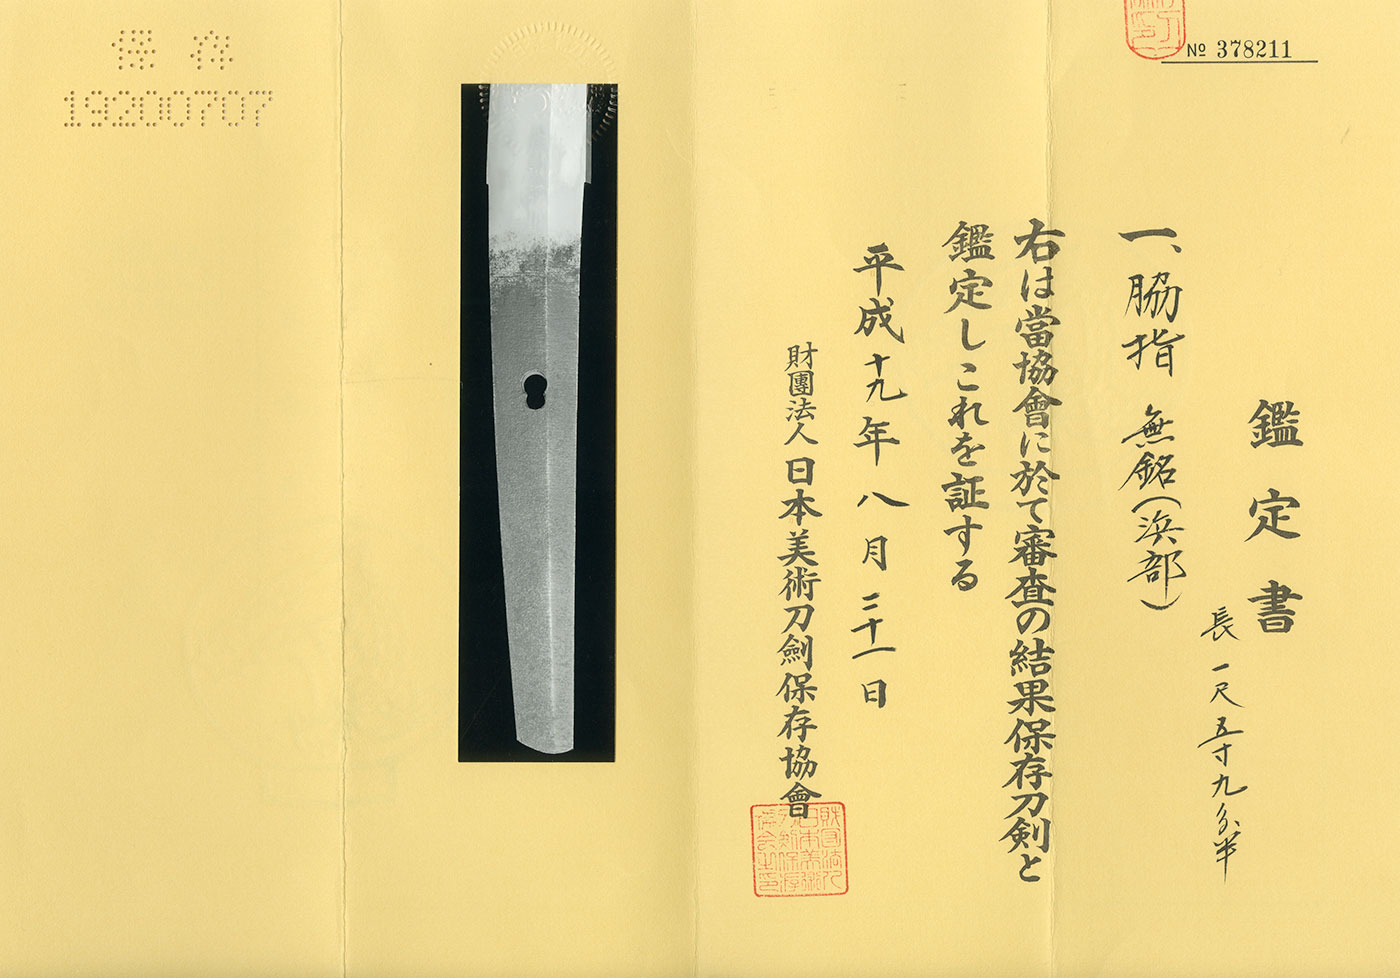 No 378211
鑑定書
長一尺五寸九分半
一、脇指 無銘(浜部)
右は當協會に於て審査の結果保存刀剣と
鑑定しこれを証する
平成十九年八月二十一日
財團法人日本美術刀劍保存協會
保存
19200707